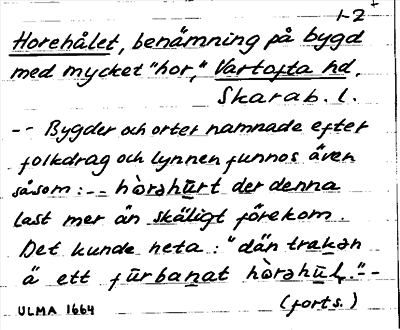 1-2
Horehålet, benämning på bygd
med mycket "hor," Vartofta hd.
Skarab. l.
-- Bygder och orter namnade efter
folkdrag och lynnen funnos även
såsom: -- hòrəhūrt der denna
last mer än skäligt förekom.
Det kunde heta: "dän trakən
ä ett fūrbanat hòrəhūḷ." --
(forts.)
ULMA 1664